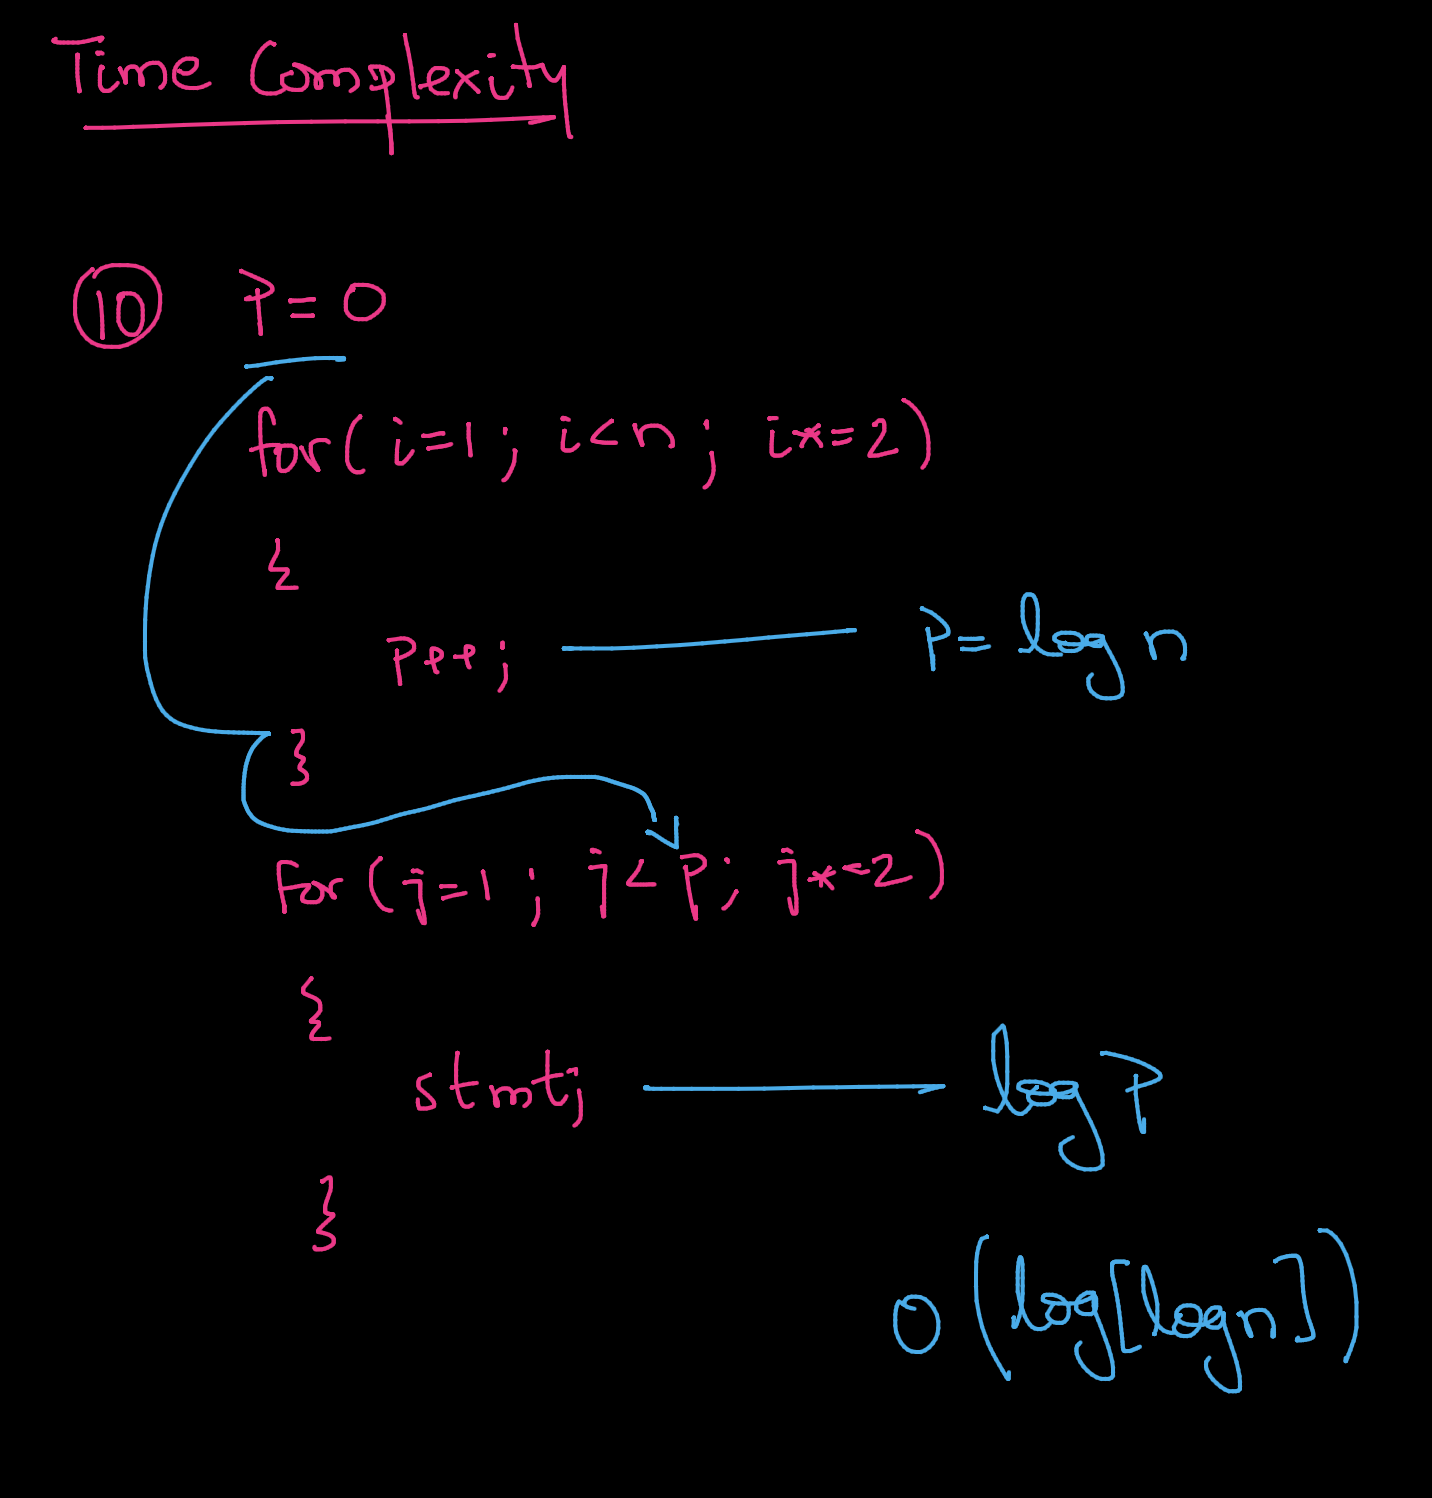 Time Complexity
10 P=0
for( i=1; i<n; i*=2)
{
P++; P= log n
}
For (j=1; j<P; j*=2)
{
stmt; log P
}
O(log[log n])